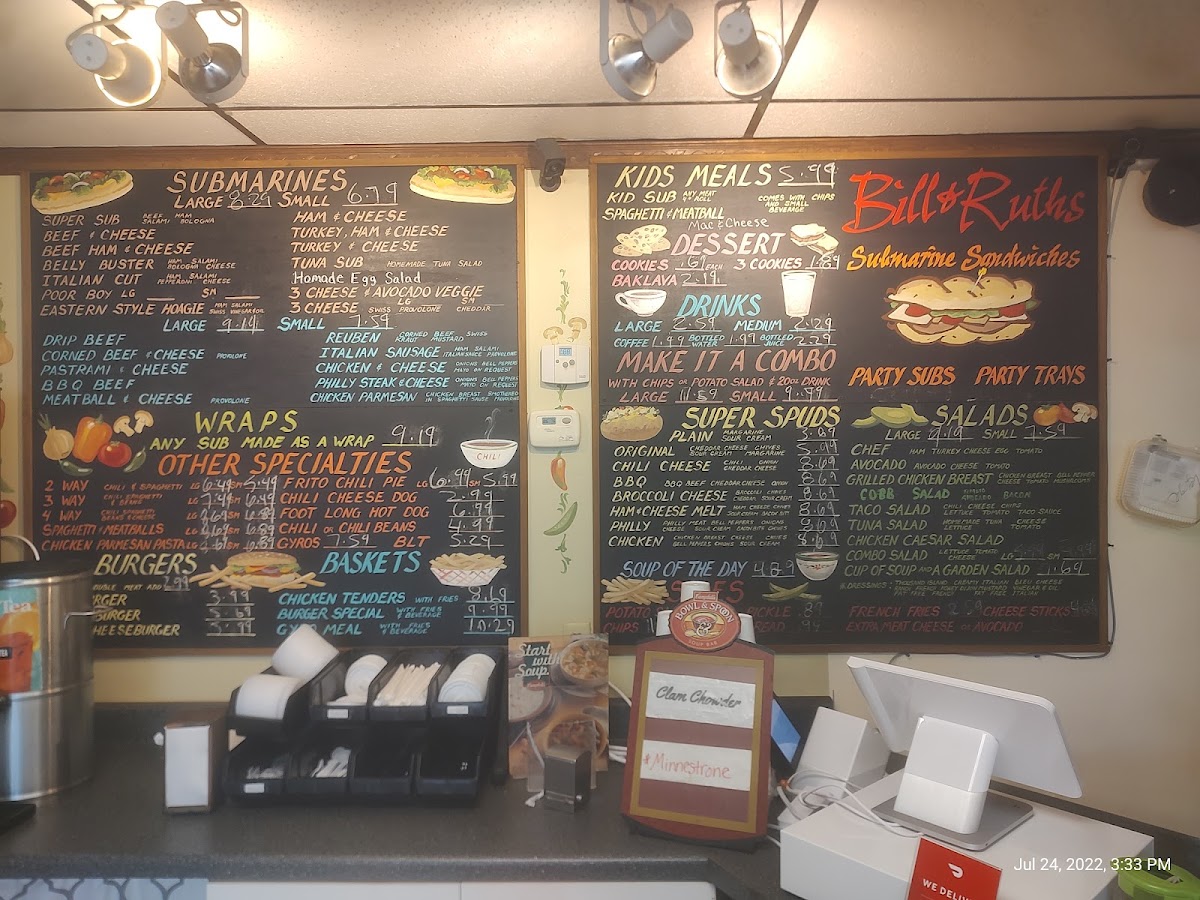 SUBMARINES
LARGE 8.29 SMALL 6.79
SUPER SUB BEEF HAM SALAMI BOLOGNA
BEEF & CHEESE
BEEF HAM & CHEESE
BELLY BUSTER HAM SALAMI BOLOGNA CHEESE
ITALIAN CUT HAM SALAMI PEPPERONI CHEESE
POOR BOY LG SM
EASTERN STYLE HOAGIE HAM SALAMI SWISS VINEGAR & OIL
HAM & CHEESE
TURKEY, HAM & CHEESE
TURKEY & CHEESE
TUNA SUB HOMEMADE TUNA SALAD
Homade Egg Salad
3 CHEESE & AVOCADO VEGGIE
LG SM
3 CHEESE SWISS PROVOLONE CHEDDAR
LARGE 9.19 SMALL 7.59
DRIP BEEF
CORNED BEEF & CHEESE PROVOLONE
PASTRAMI & CHEESE
BBQ BEEF
MEATBALL & CHEESE PROVOLONE
REUBEN CORNED BEEF SWISS KRAUT MUSTARD
ITALIAN SAUSAGE HAM SALAMI ITALIAN SAUCE PROVOLONE
CHICKEN & CHEESE ONIONS BELL PEPPERS MAYO ON REQUEST
PHILLY STEAK & CHEESE ONIONS BELL PEPPERS MAYO ON REQUEST
CHICKEN PARMESAN CHICKEN BREAST SMOTHERED IN SPAGHETTI SAUCE
WRAPS
ANY SUB MADE AS A WRAP 9.19
CHILI
OTHER SPECIALTIES
2 WAY CHILI & SPAGHETTI LG 6.49 SM 5.49
3 WAY CHILI SPAGHETTI & BEANS LG 7.49 SM 6.49
4 WAY CHILI SPAGHETTI BEANS & CHEESE LG SM 6.89
SPAGHETTI & MEATBALLS LG SM 6.89
CHICKEN PARMESAN PASTA LG SM 6.89
FRITO CHILI PIE LG 6.99 SM 5.99
CHILI CHEESE DOG 2.99
FOOT LONG HOT DOG 6.99
CHILI OR CHILI BEANS 4.99
GYROS 7.59 BLT 5.29
BURGERS
DOUBLE MEAT ADD 1.99
RGER 3.99
URGER 3.69
HEESEBURGER 3.99
BASKETS
CHICKEN TENDERS WITH FRIES 8.69
BURGER SPECIAL WITH FRIES & BEVERAGE 9.99
GYRO MEAL WITH FRIES & BEVERAGE 10.29
KIDS MEALS 5.99
KID SUB ANY MEAT 4" ROLL
SPAGHETTI & MEATBALL
COMES WITH CHIPS AND SMALL BEVERAGE
Mac & Cheese
DESSERT
COOKIES .69 EACH 3 COOKIES 1.89
BAKLAVA 2.19
DRINKS
LARGE 2.59 MEDIUM 2.29
COFFEE 1.99 BOTTLED WATER 1.99 BOTTLED JUICE 2.29
MAKE IT A COMBO
WITH CHIPS OR POTATO SALAD & 20oz DRINK
LARGE 11.59 SMALL 9.99
Bill & Ruths
Submarine Sandwiches
PARTY SUBS PARTY TRAYS
SUPER SPUDS
PLAIN MARGARINE SOUR CREAM 3.09
ORIGINAL CHEDDAR CHEESE CHIVES SOUR CREAM MARGARINE 5.99
CHILI CHEESE CHILI ONION CHEDDAR CHEESE 8.69
BBQ BBQ BEEF CHEDDAR CHEESE ONION 8.69
BROCCOLI CHEESE BROCCOLI CHIVES CHEDDAR SOUR CREAM 8.69
HAM & CHEESE MELT HAM CHEESE CHIVES SOUR CREAM BACON BITS 8.69
PHILLY PHILLY MEAT BELL PEPPERS ONIONS CHEESE SOUR CREAM CHEDDAR CHIVES 8.69
CHICKEN CHICKEN BREAST CHEESE CHIVES BELL PEPPERS ONIONS SOUR CREAM 8.69
SOUP OF THE DAY 4.89
SALADS
LARGE 9.19 SMALL 7.59
CHEF HAM TURKEY CHEESE EGG TOMATO
AVOCADO AVOCADO CHEESE TOMATO
GRILLED CHICKEN BREAST CHICKEN BREAST BELL PEPPER CHEESE TOMATO MUSHROOMS
COBB SALAD BACON
TACO SALAD CHILI CHEESE CHIPS LETTUCE TOMATO TACO SAUCE
TUNA SALAD HOMEMADE TUNA CHEESE LETTUCE TOMATO
CHICKEN CAESAR SALAD
COMBO SALAD LETTUCE TOMATO CHEESE LG SM
CUP OF SOUP AND A GARDEN SALAD 7.69
DRESSINGS - THOUSAND ISLAND CREAMY ITALIAN BLEU CHEESE
FAT FREE ITALIAN
POTATO
PICKLE .89
CHIPS
READ .99
FRENCH FRIES 2.59 CHEESE STICKS
EXTRA MEAT CHEESE OR AVOCADO
Tea
Start with Soup.
Campbell's
BOWL & SPOON
SOUP BAR
Clam Chowder
*Minnestrone
WE DELIV
Jul 24, 2022, 3:33 PM